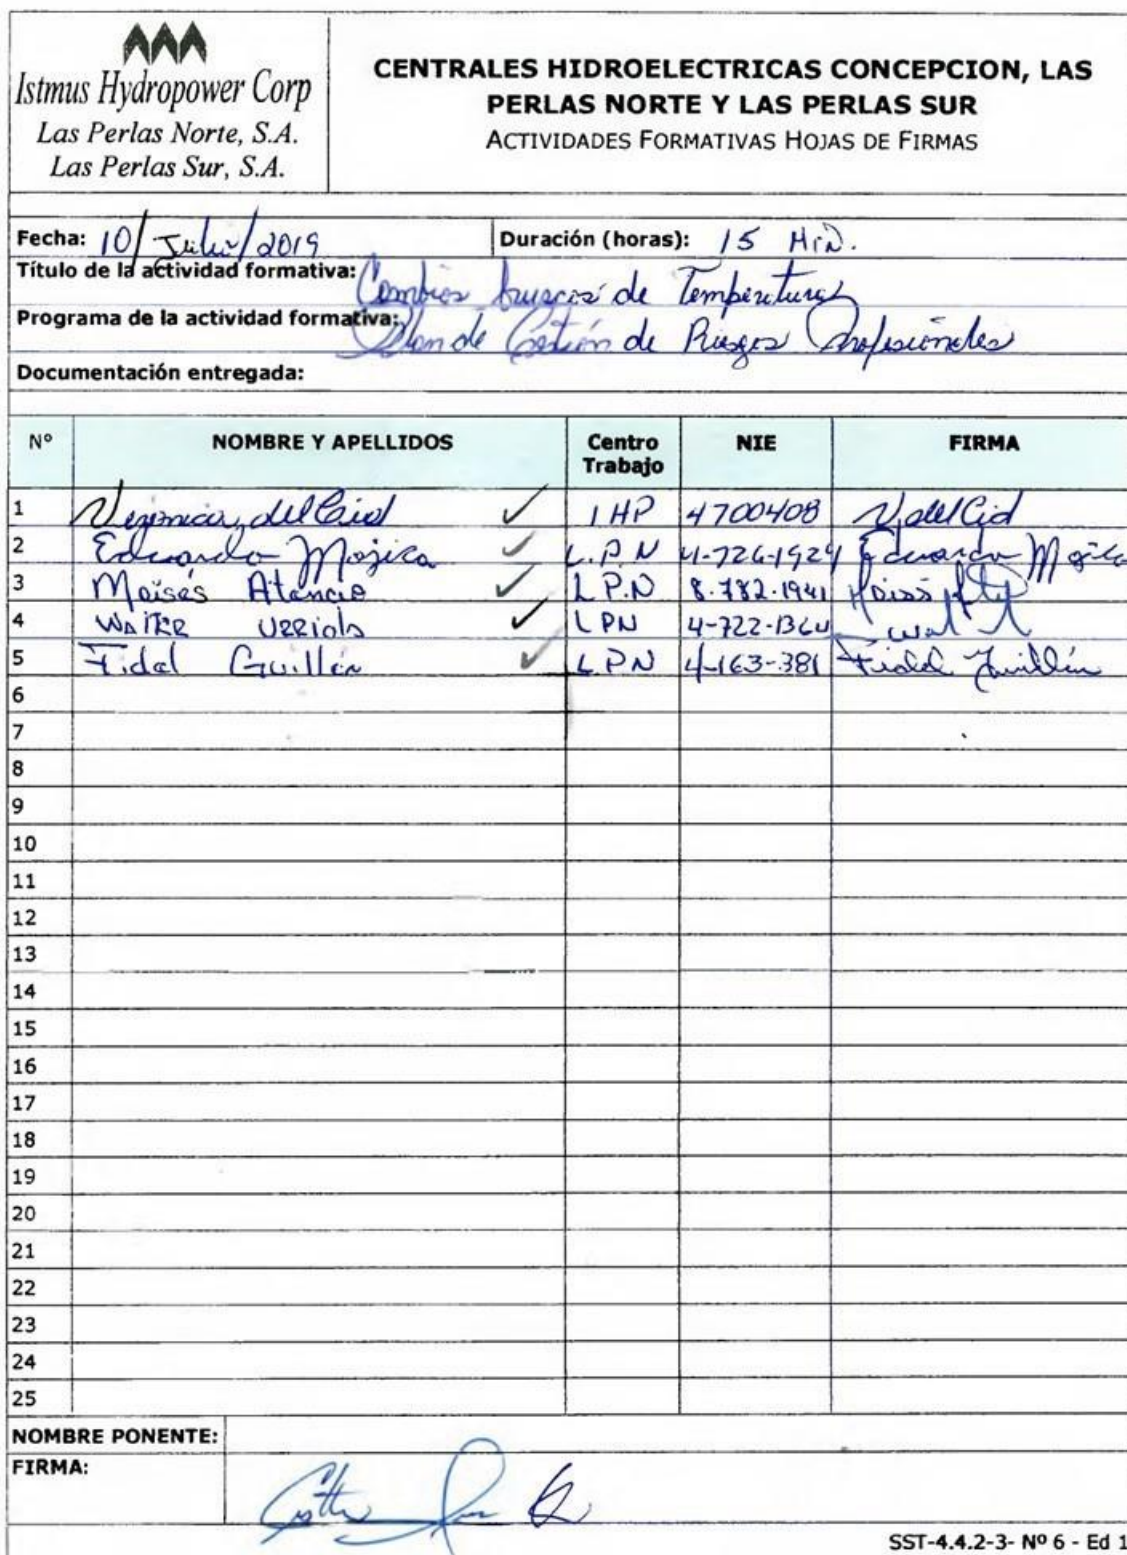 Istmus Hydropower Corp
Las Perlas Norte, S.A.
Las Perlas Sur, S.A.
CENTRALES HIDROELECTRICAS CONCEPCION, LAS
PERLAS NORTE Y LAS PERLAS SUR
ACTIVIDADES FORMATIVAS HOJAS DE FIRMAS
Fecha: 10/Julio/2019 Duración (horas): 15 Min.
Título de la actividad formativa: Cambios bruscos de Temperaturas
Programa de la actividad formativa: Plan de Gestión de Riesgos Profesionales
Documentación entregada:
Nº NOMBRE Y APELLIDOS Centro Trabajo NIE FIRMA
1 Veronica del Cid ✓ IHP 4700408 V del Cid
2 Eduardo Mojica ✓ L.P.N 4-726-1924 Eduardo Mojica
3 Moisés Atencio ✓ L P.N 8-782-1941 Moisés
4 WaiTER URRiola ✓ LPN 4-722-1364
5 Fidel Guillén ✓ L.P.N 4-163-381 Fidel Guillén
6
7
8
9
10
11
12
13
14
15
16
17
18
19
20
21
22
23
24
25
NOMBRE PONENTE:
FIRMA:
SST-4.4.2-3- Nº 6 - Ed 1